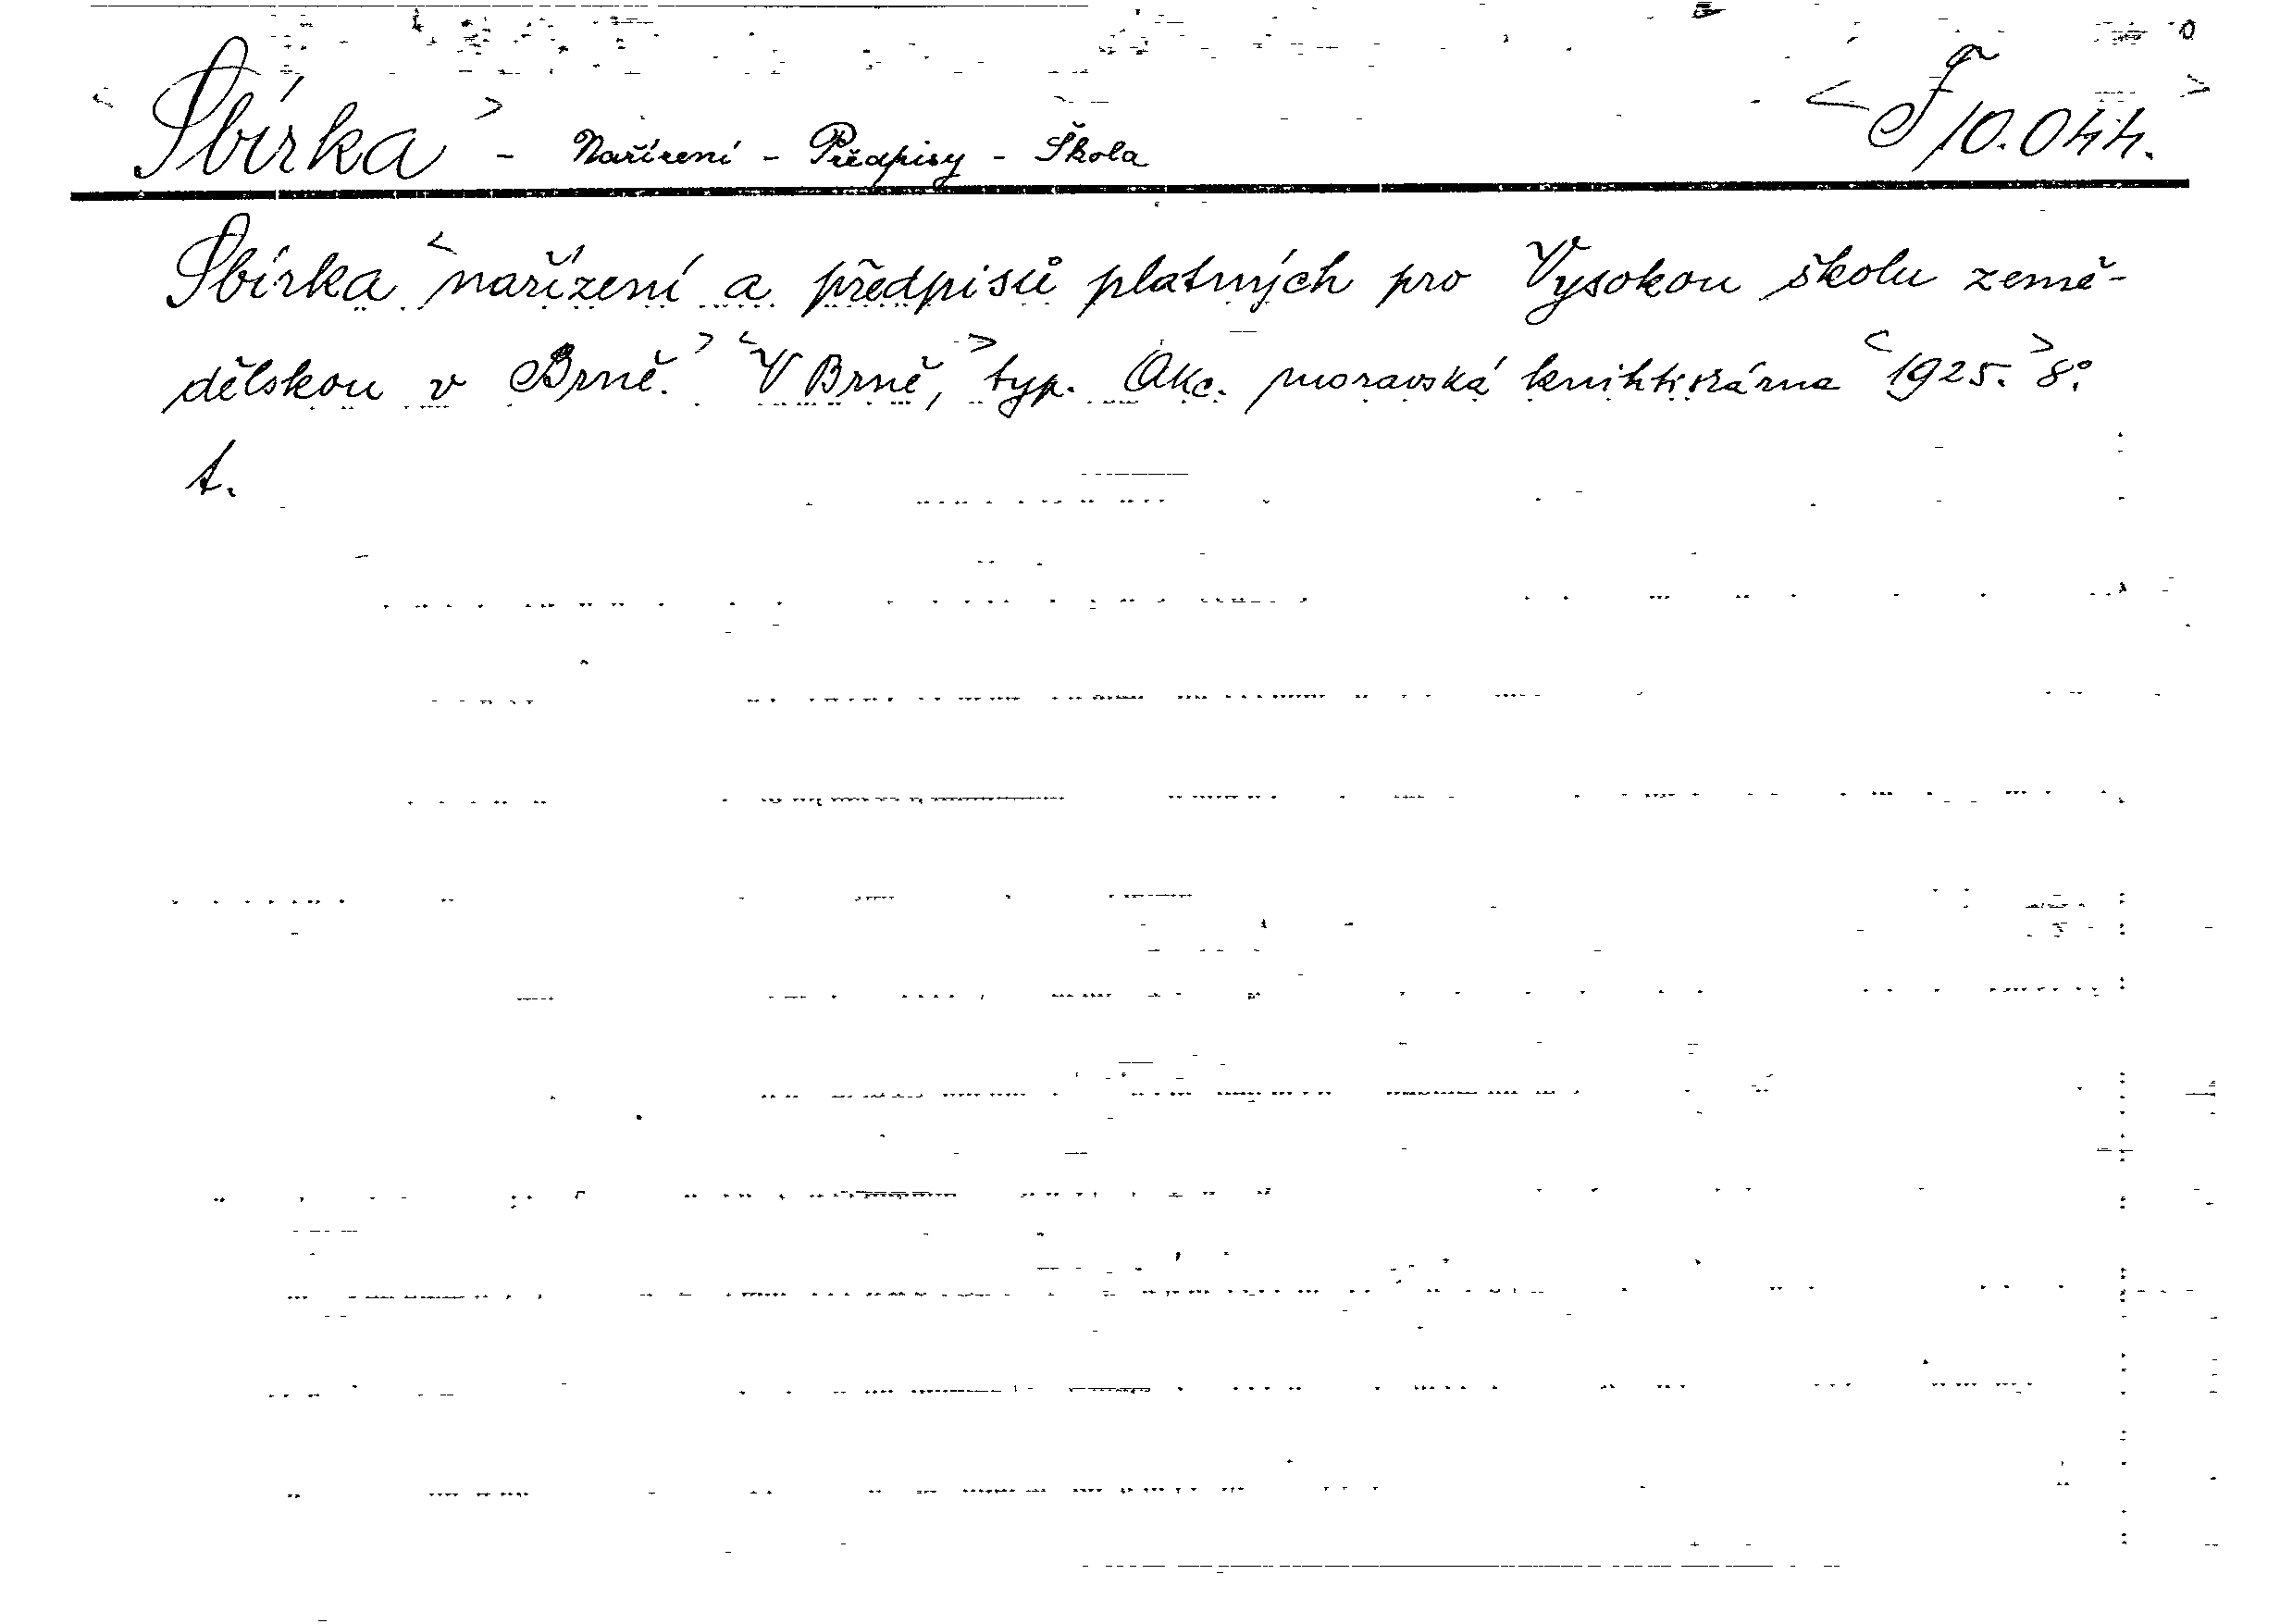 Sbírka - Nařízení - Předpisy - Škola
10.044.
Sbírka nařízení a předpisů platných pro Vysokou školu země-
dělskou v Brně. V Brně, typ. Akc. moravská knihtiskárna 1925. 8°.
t.